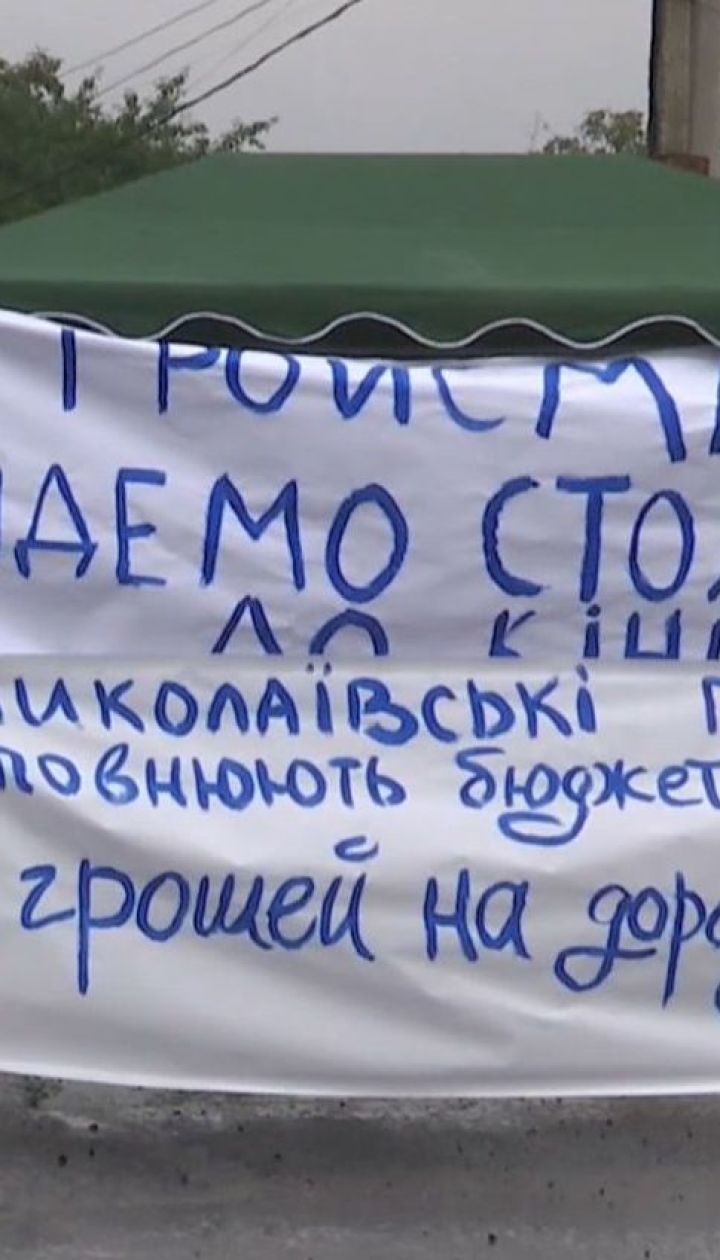 ТРОЙСМ
ДЕМО СТО
ДО КІН
ИКОЛАЇВСЬКІ
повнюють бюджет
грошей на дор